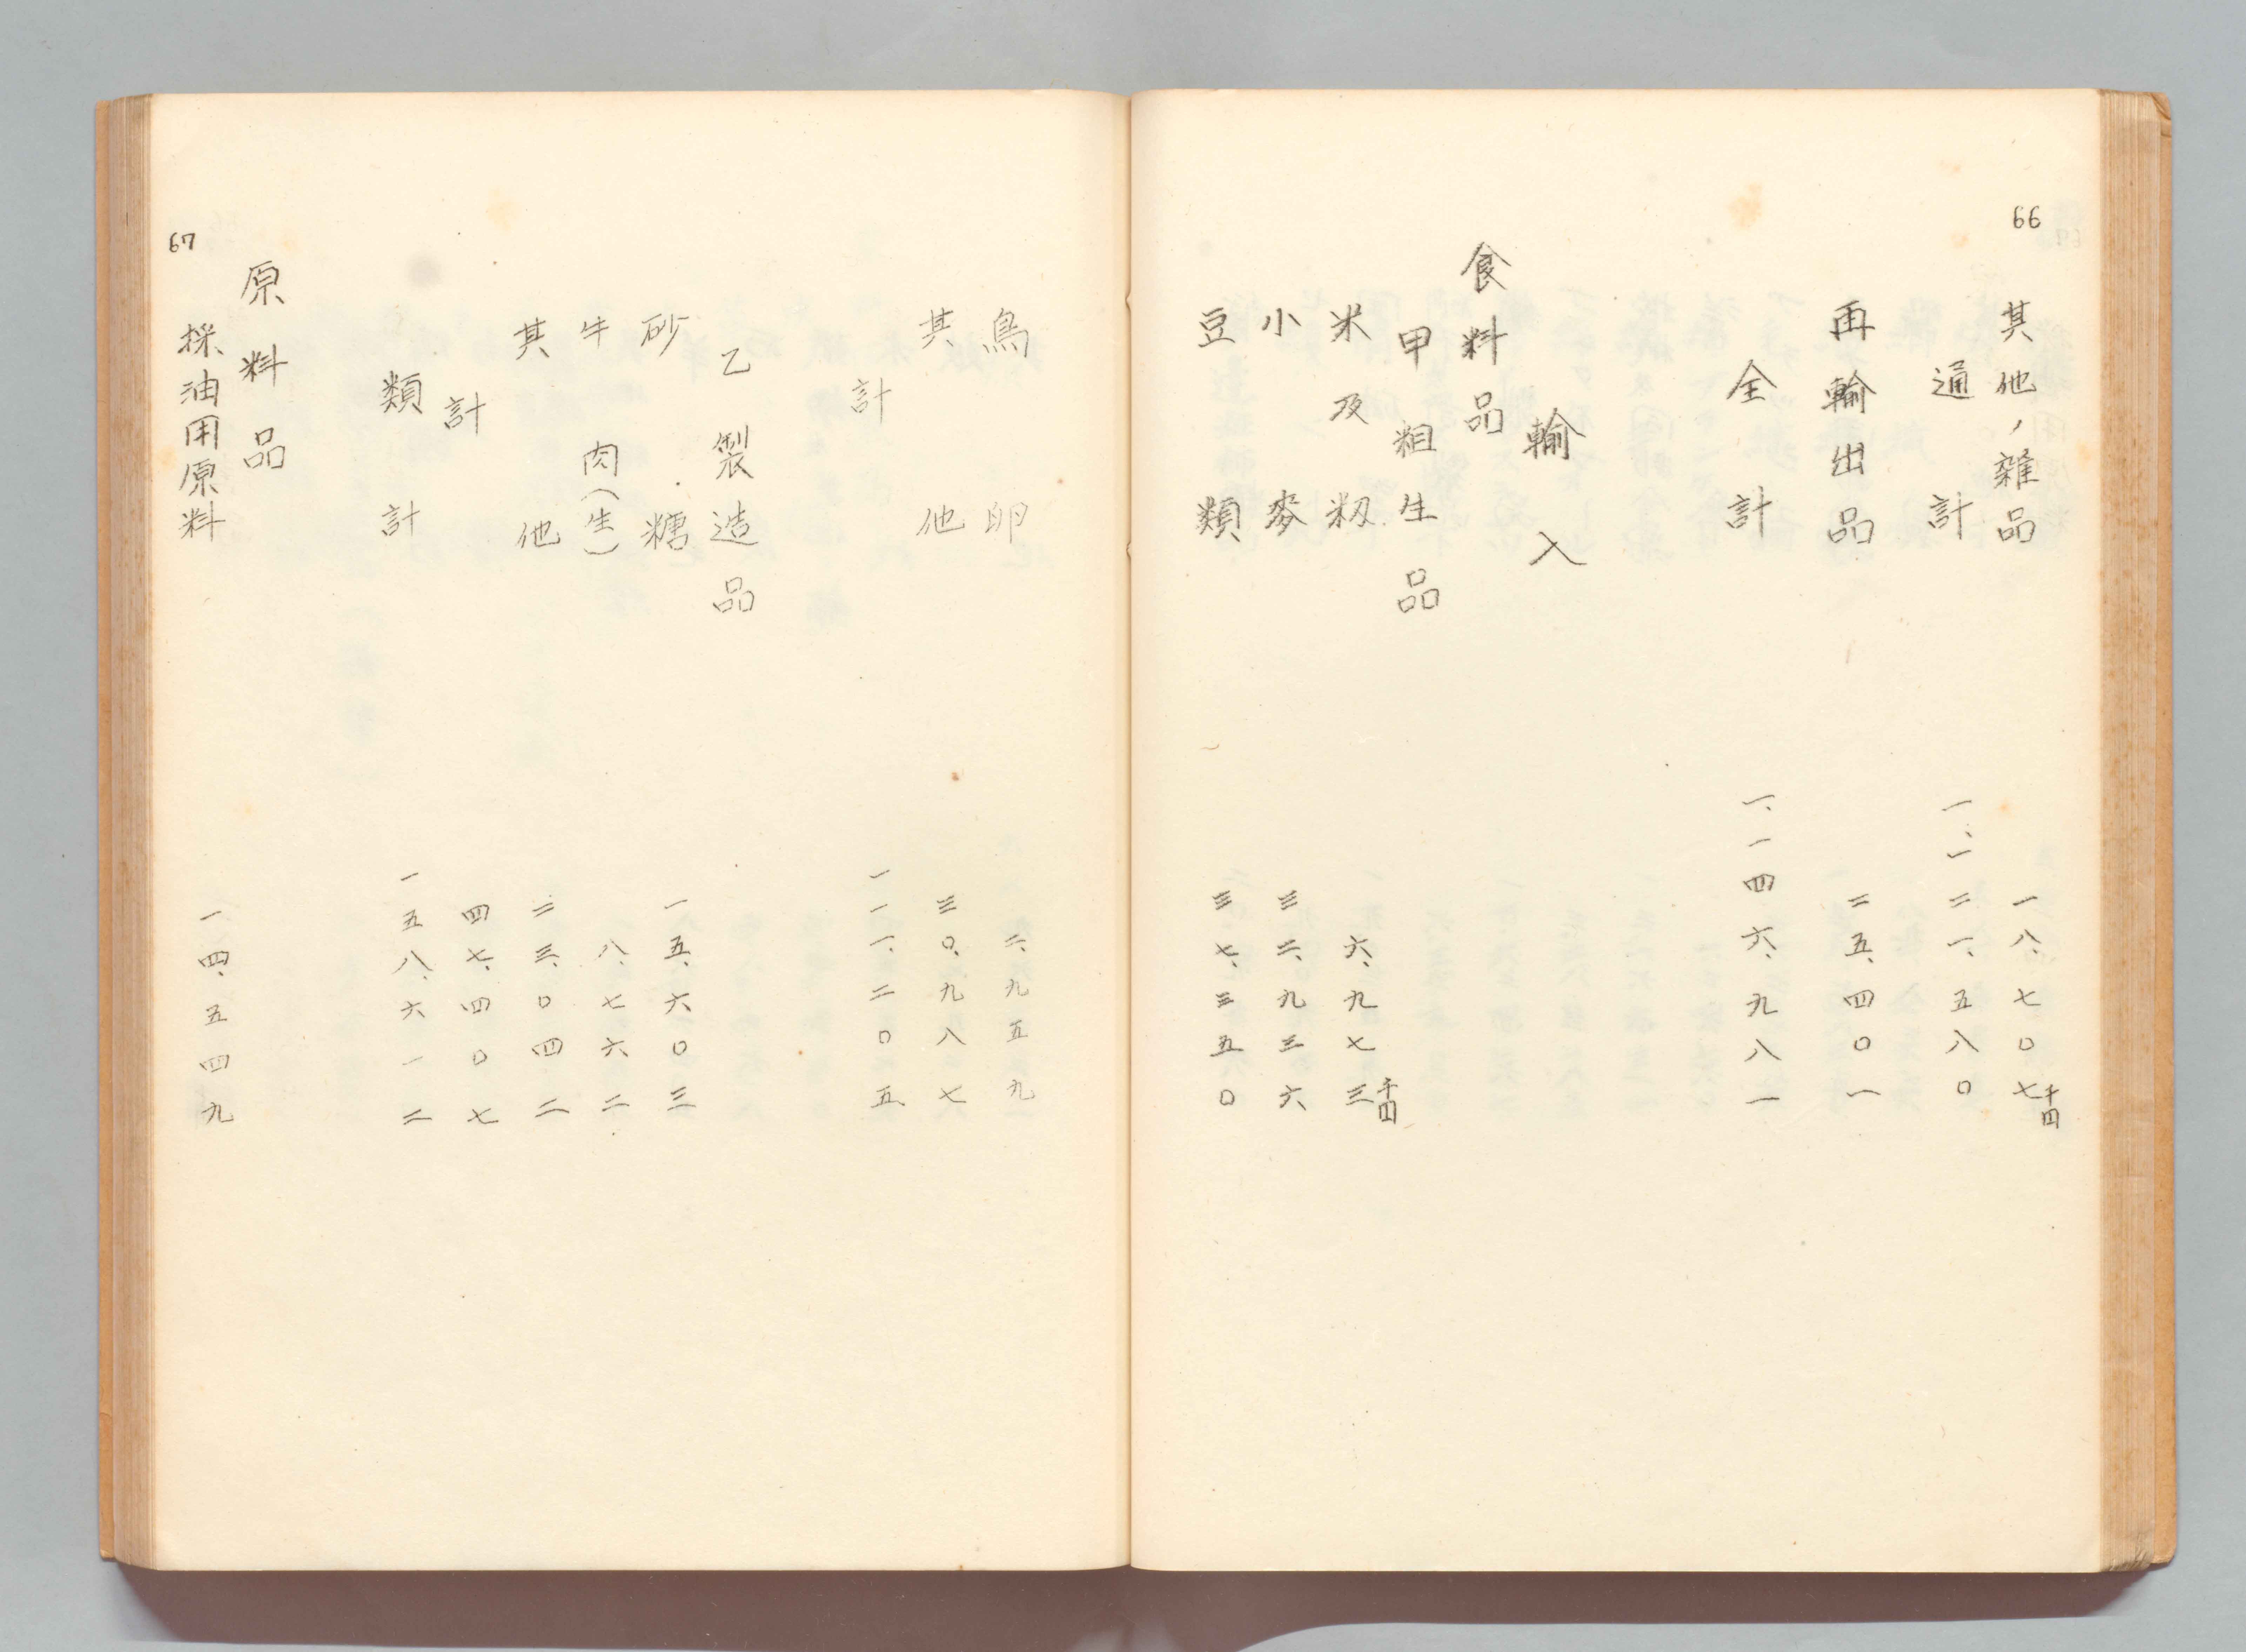 66
其他ノ雜品 一八、七〇七千円
通計 一、一二一、五八〇
再輸出品 二五、四〇一
全計 一、一四六、九八一
輸入
食料品
甲粗生品
米及籾 六、九七三千円
小麥 三二、九三六
豆類 三七、三五〇
鳥卵 二、九五九
其他 三〇、九八七
計 一一一、二〇五
乙製造品
砂糖 一五、六〇三
牛肉(生) 八、七六二
其他 二三、〇四二
計 四七、四〇七
類計 一五八、六一二
原料品
67
採油用原料 一四、五四九